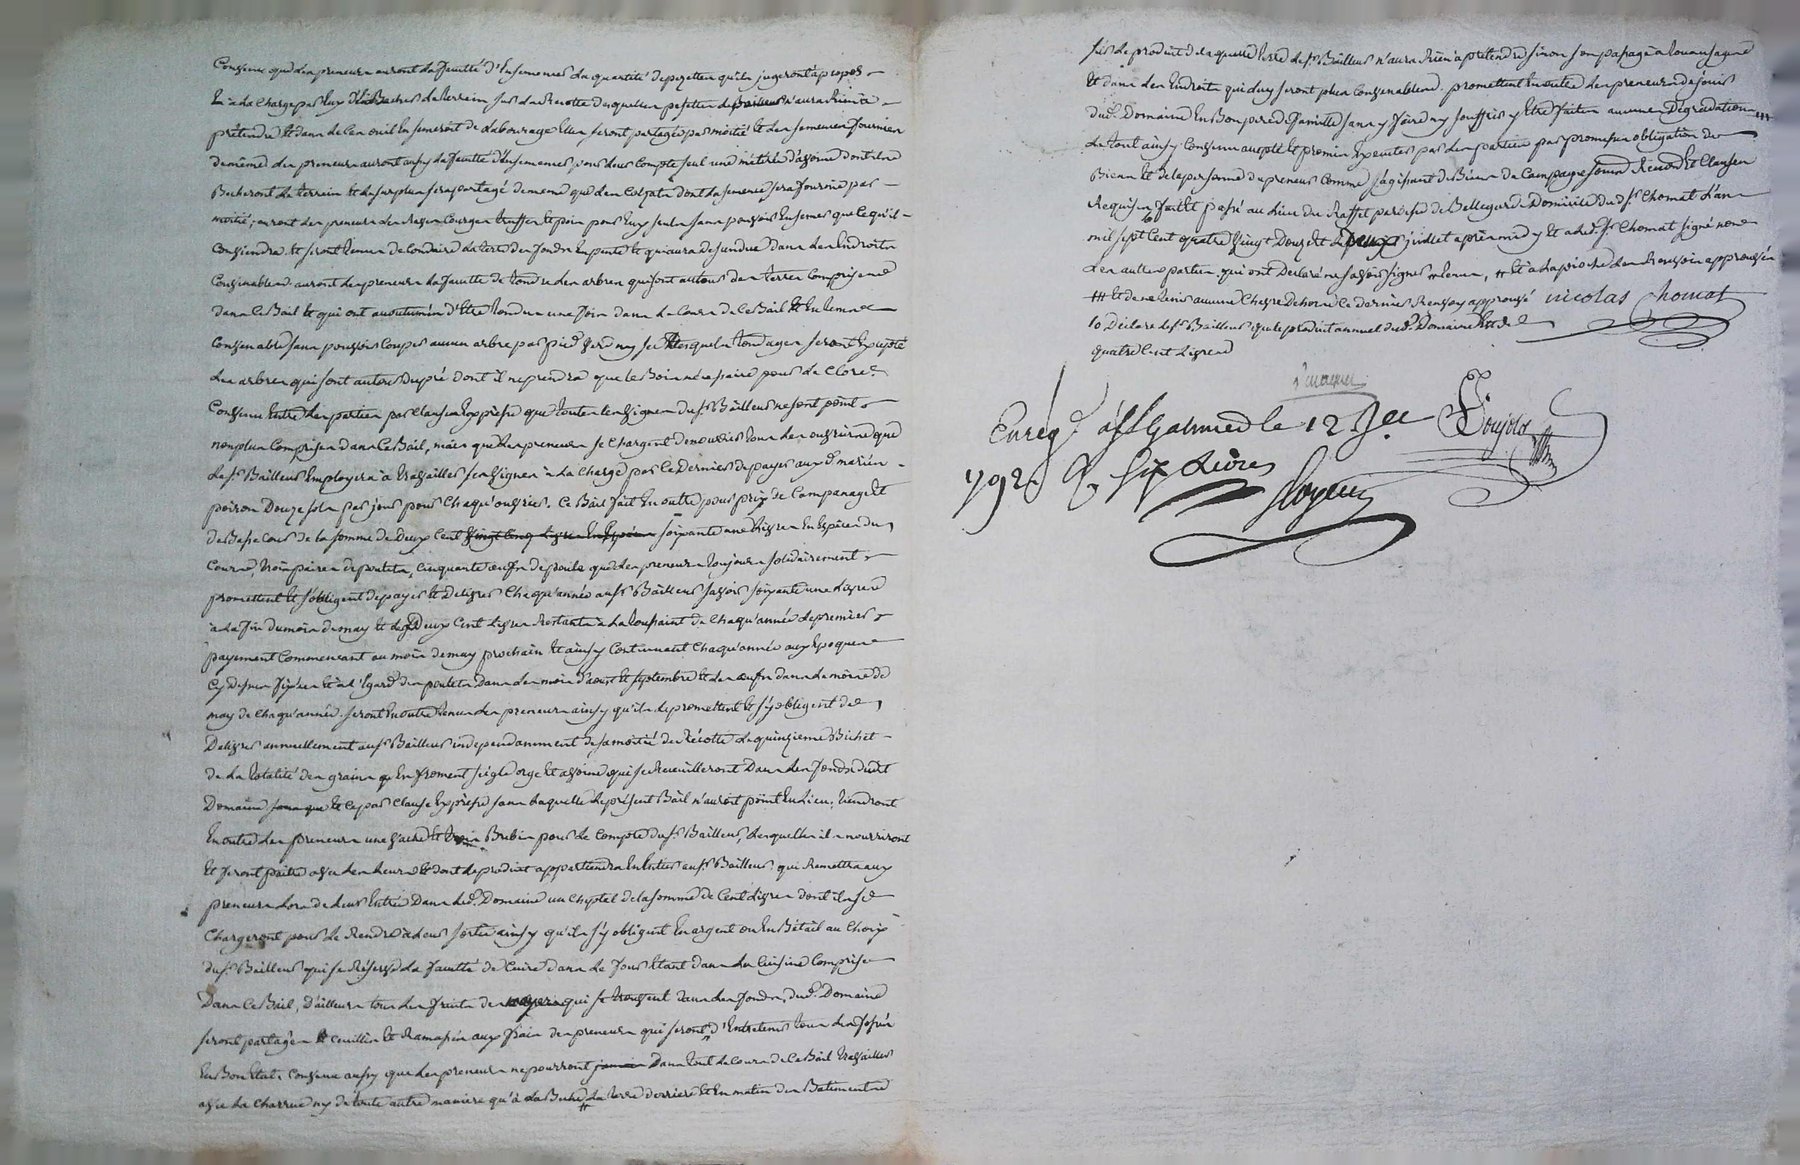 Convenu que les preneurs auront la faculté d'ensemencer la quantité de pezettes qu'ils jugeront à propos
et à la charge par eux de becher le terrein, sur la recolte desquelles pesettes le sr bailleur n'aura rien à
prétendre et dans le cas ou il en semeroit de labourage elles seront partagées par moitié et les semences fournies
de même. les preneurs auront aussy la faculté d'ensemencer pour leur compte seul une métérée d'avoine dont ils
becheront le terrein et le surplus sera partagé de meme que les colzats dont la semence sera fournie par
moitié, auront les preneurs les raves courges truffes et pois pour eux seuls sans pouvoir en semer que ce qu'il
conviendra et seront tenus de conduire la terre des fonds en pente et qui aura descendue dans les endroits
convenables. auront les preneurs la faculté de tondre les arbres qui sont autour des terres comprises
dans ce bail et qui ont accoutumés d'etre tondus une fois dans le cours de ce bail et en tems
convenable sans pouvoir couper aucun arbre par pied verd ny sec desquels tondages seront exceptés
les arbres qui sont autour du pré dont il ne prendra que le bois nécessaire pour le clore.
Convenu entre les parties par clause expresse que toutes les vignes du sr bailleur ne sont point
non plus comprises dans ce bail, mais que les preneurs se chargent de nourrir tous les ouvriers que
le sr bailleur employera à travailler ses vignes à la charge par ce dernier de payer aux dt mariés
poizon douze sols par jour pour chaqu'ouvrier. Ce bail fait en outre pour prix de campanage et
de basse cour de la somme de deux cent vingt cinq livres en espèces soixante une livres en espèces du
cours, trois paires de poulets, cinquante œufs de poule que les preneurs toujours solidairement
promettent et s'obligent de payer et delivrer chaqu'année au sr bailleur savoir soixante une livres
à la fin du mois de may et les deux cent livres restantes à la toussaint de chaqu'année le premier
payement commencant au mois de may prochain et ainsy continuer chaqu'année aux epoques
cy dessus fixées et à l'egard des poulets dans les mois d'aoust et septembre et les œufs dans le mois de
may de chaqu'année. seront en outre tenus les preneurs ainsy qu'ils le promettent et s'y obligent de
delivrer annuellement au sr bailleur independamment de sa moitié de récolte le quinzieme bichet
de la totalité des grains en froment seigle orge et avoine qui se recueilleront dans les fonds dudit
domaine et ce par clause expresse sans laquelle le présent bail n'auroit point eu lieu, tiendront
en outre les preneurs une vache et trois brebis pour le compte du sr bailleur, lesquelles ils nourriront
et feront paitre avec les leurs et dont le produit appartiendra en entier au sr bailleur, qui remettra aux
preneurs lors de leur entrée dans led. domaine un cheptel de la somme de cent livres dont ils se
chargeront pour le rendre à leur sortie ainsy qu'ils s'y obligent en argent ou en bétail au choix
du sr bailleur qui se réserve la faculté de cuire dans le four etant dans la cuisine comprise
dans ce bail, d'ailleurs tous les fruits de noyers qui se trouvent dans les fonds dud. domaine
seront partagés et cueillis et ramassés aux frais des preneurs qui seront d'entretenir tous les fossés
en bon etat. convenu aussy que les preneurs ne pourront jamais dans tout le cours de ce bail travailler
avec la charrue ny de toute autre maniere qu'à la beche la terre derriere et en matin des batiments
sur le produit de laquelle terre le sr bailleur n'aura rien à prétendre sinon son passage
et dans les endroits qui luy seront plus convenables. promettent en outre les preneurs de jouir
dud. domaine en bon pere de famille sans y faire ny souffrir y etre faites aucunes dégradations
le tout ainsy convenu accepté et promis executer par les parties par promesse obligation de
biens et de la personne du preneur comme s'agissant de biens de campagne soumn renon et clauses
requises fait et passé au lieu du Raffet paroisse de Bellegarde domicile du d. sr Chomat l'an
mil sept cent quatre vingt douze et le deux juillet après midy et a led. sr Chomat signé non
les autres parties qui ont declaré ne savoir signer de ce enquis, # et à la pioche les renvois approuvés
### et de ne tenir aucune chevre dehors ce dernier renvoy approuvé nicolas Chomat
10 Déclare le sr bailleur que le produit annuel dud. domaine est de
quatre cent livres
Enregé à St Galmier le 12 Jlet
1792. R. six livres